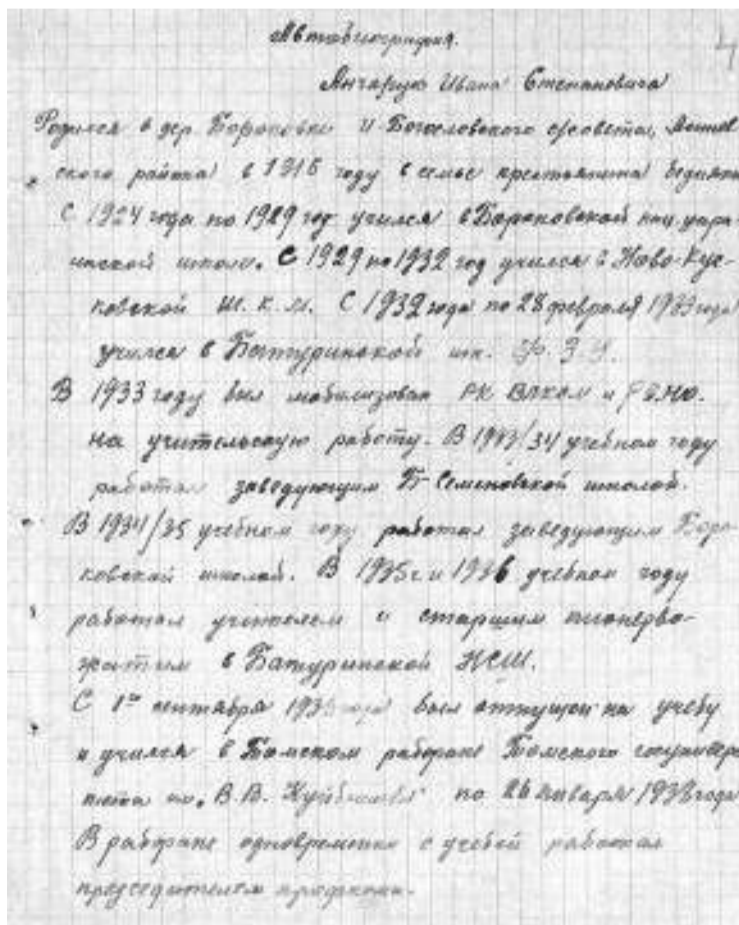 Автобиография.
4
Анчарук Ивана Степановича
Родился в дер. Бороковке Богословского с/совета,
ского района в 1916 году в семье крестьянина бедняка
С 1924 года по 1929 год учился в Бороковской нац. укра-
инской школе. С 1929 по 1932 год учился в Ново-Кус-
ковской Ш. К. М. С 1932 года по 28 февраля 1933 года
учился в Батуринской шк.
В 1933 году был мобилизован РК ВЛКСМ и РОНО.
на учительскую работу. В 1933/34 учебном году
работал заведующим Семеновской школой.
В 1934/35 учебном году работал заведующим Боро-
ковской школой. В 1935 и 1936 учебном году
работал учителем и старшим пионерво-
жатым в Батуринской НСШ.
С 1го сентября года был отпущен на учебу
и учился в Томском рабфаке Томского госуниверс
тета им. В. В. Куйбышева по 26 января 1938 года
В рабфаке одновременно с учебой работал
председателем профкома.